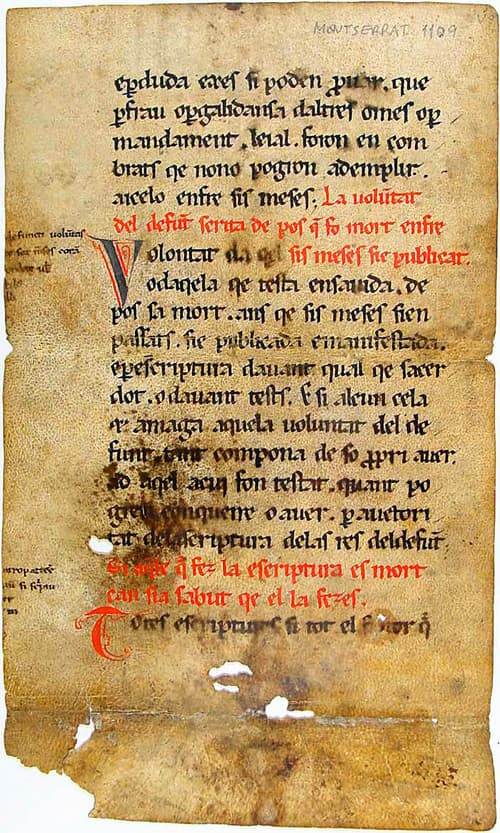 MONTSERRAT 1109
eꝑduda eres si poden ꝓuar. que
ꝑ frau oꝑ galidansa daltres omes oꝑ
mandament. leial. foron en com
brats qe nono pogron ademplir.
aicelo enfre sis meses. La volũtat
del defũt serita de pos q̃ fo mort enfre
Volontat da qel sis meses sie publicat.
odaqela qe testa ensauida. de
pos sa mort. ans qe sis meses sien
passats. sie publicada e manifestada.
eper escriptura dauant qual qe sacer
dot. o dauant tests. E si alcun cela
ne amaga aquela voluntat del de
funt. tant compona de so ꝓpri auer.
ad aqel acui fon testat. quant po
gren conquerre o auer. ꝑ auctori
tat dela scriptura delas res deldefũt.
Si aqel q̃ fez la escriptura es mort
can sia sabut qe el la fezes.
Totes escriptures si tot el q̃